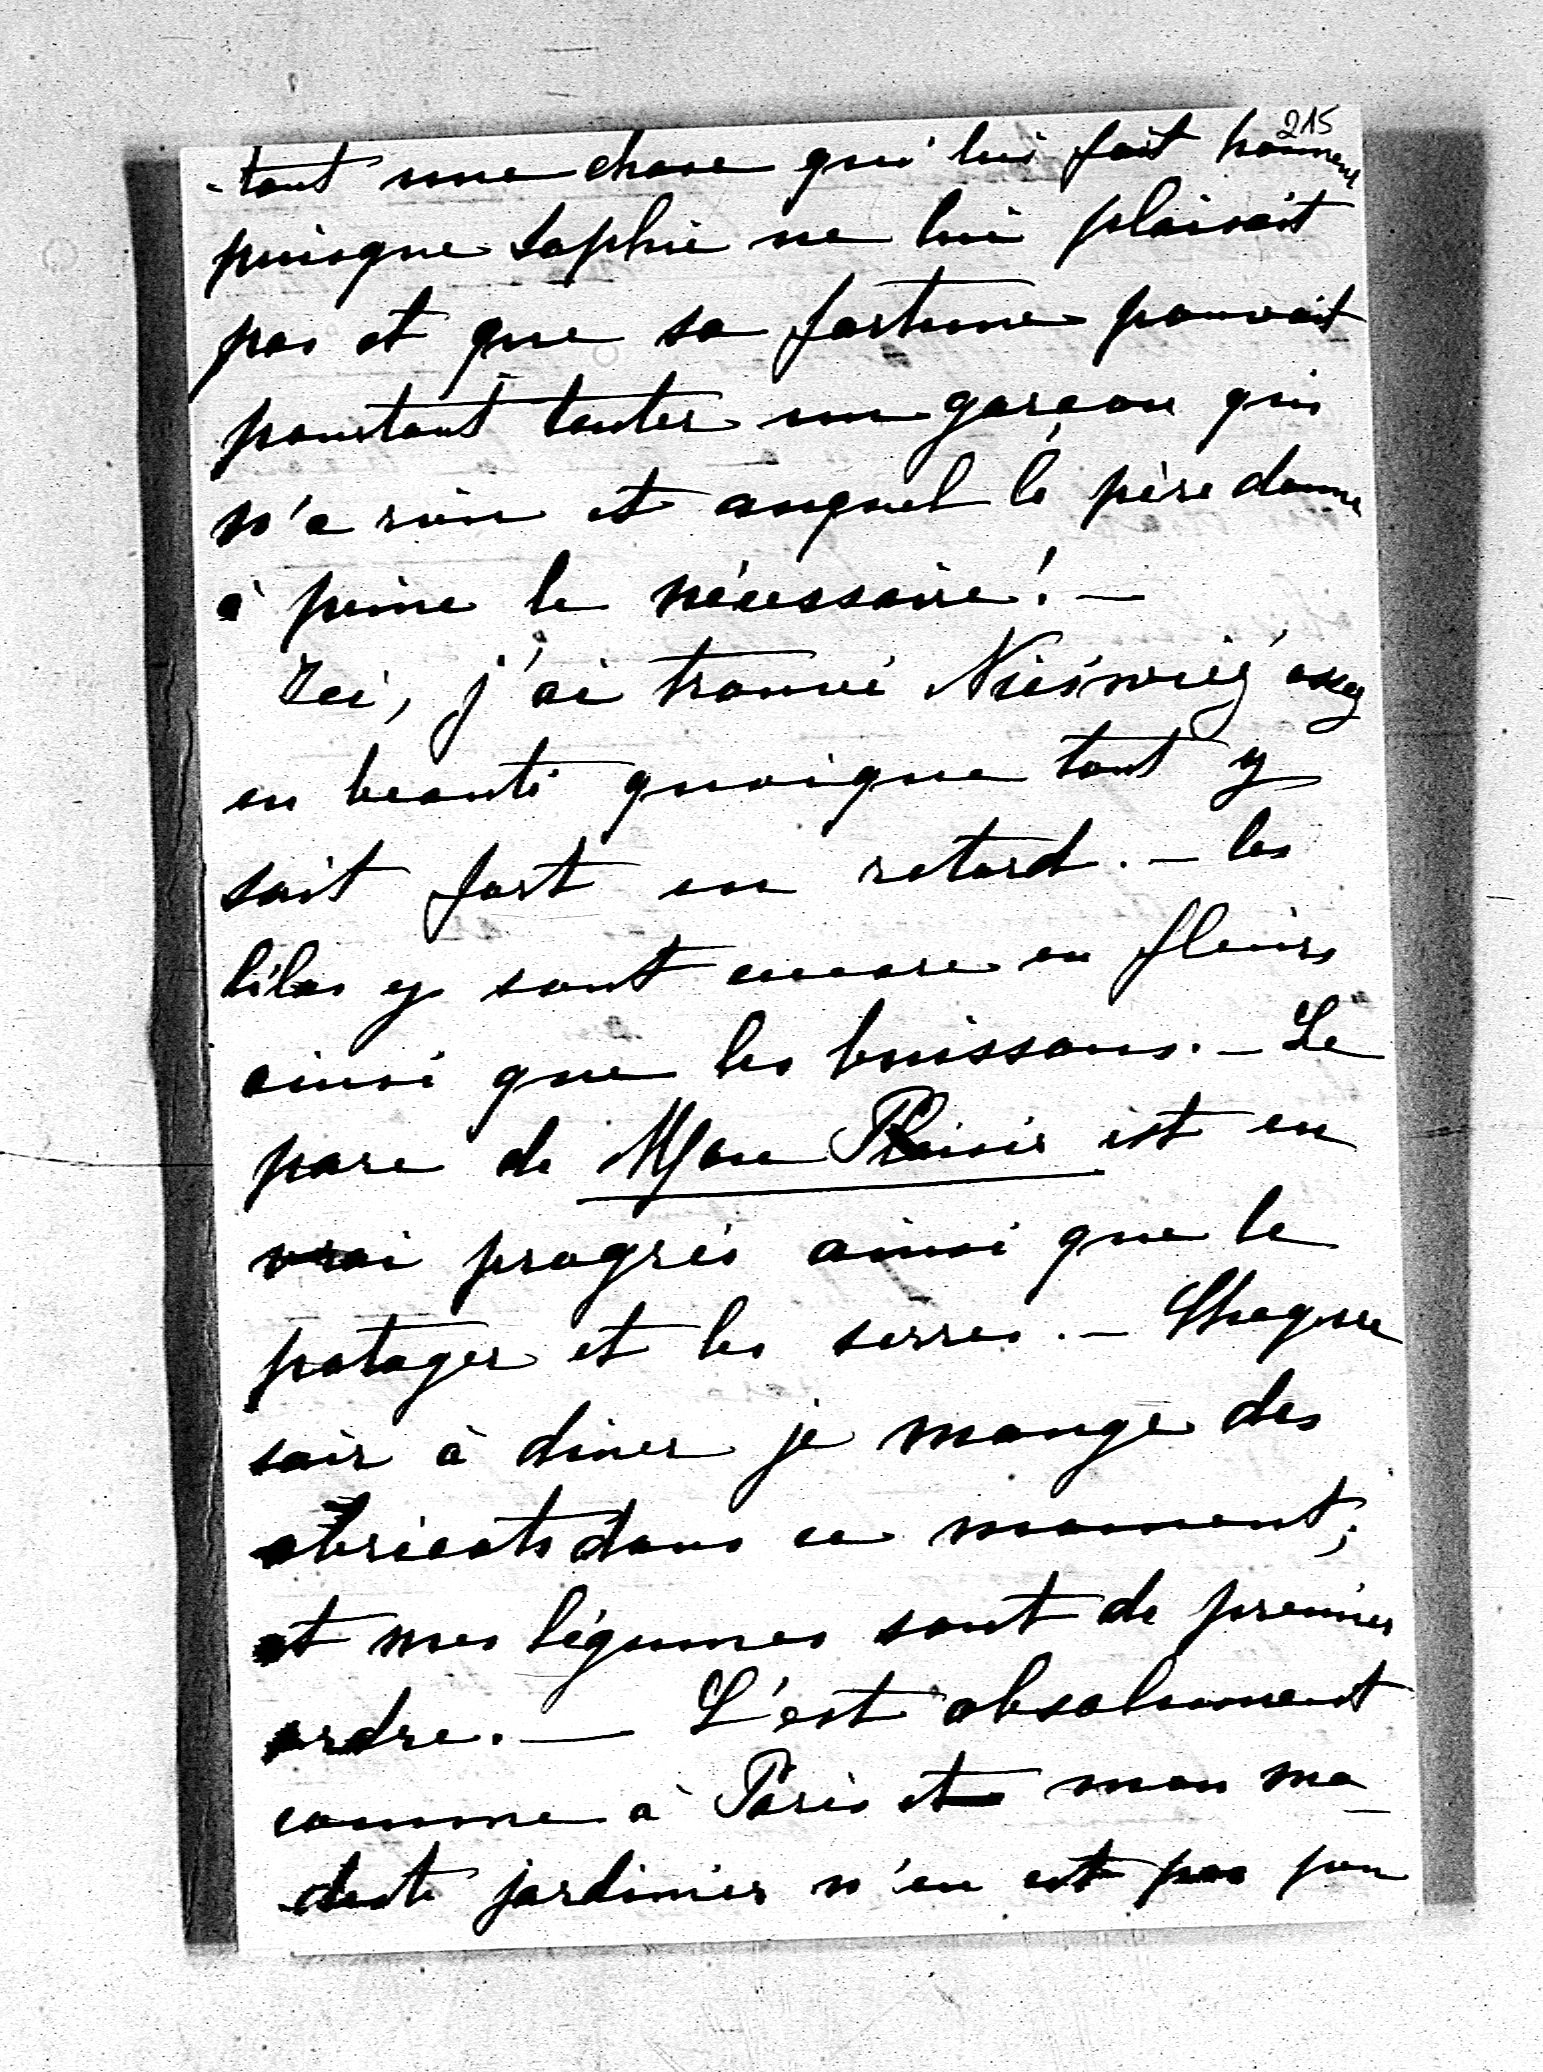 215
-tout une chose qui lui fait honneur
puisque Sophie ne lui plaisait
pas et que sa fortune pouvait
pourtant tenter un garçon qui
n'a rien et auquel le père donne
à peine le nécessaire! —
Ici, j'ai trouvé Nieśwież assez
en beauté quoique tout y
soit fort en retard. — les
lilas y sont encore en fleurs
ainsi que les buissons. — Le
parc de Mon Plaisir est en
vrai progrès ainsi que le
potager et les serres. — Chaque
soir à diner je mange des
abricots dans ce moment;
et mes légumes sont de premier
ordre. — C'est absolument
comme à Paris et mon mo-
deste jardinier n'en est pas peu